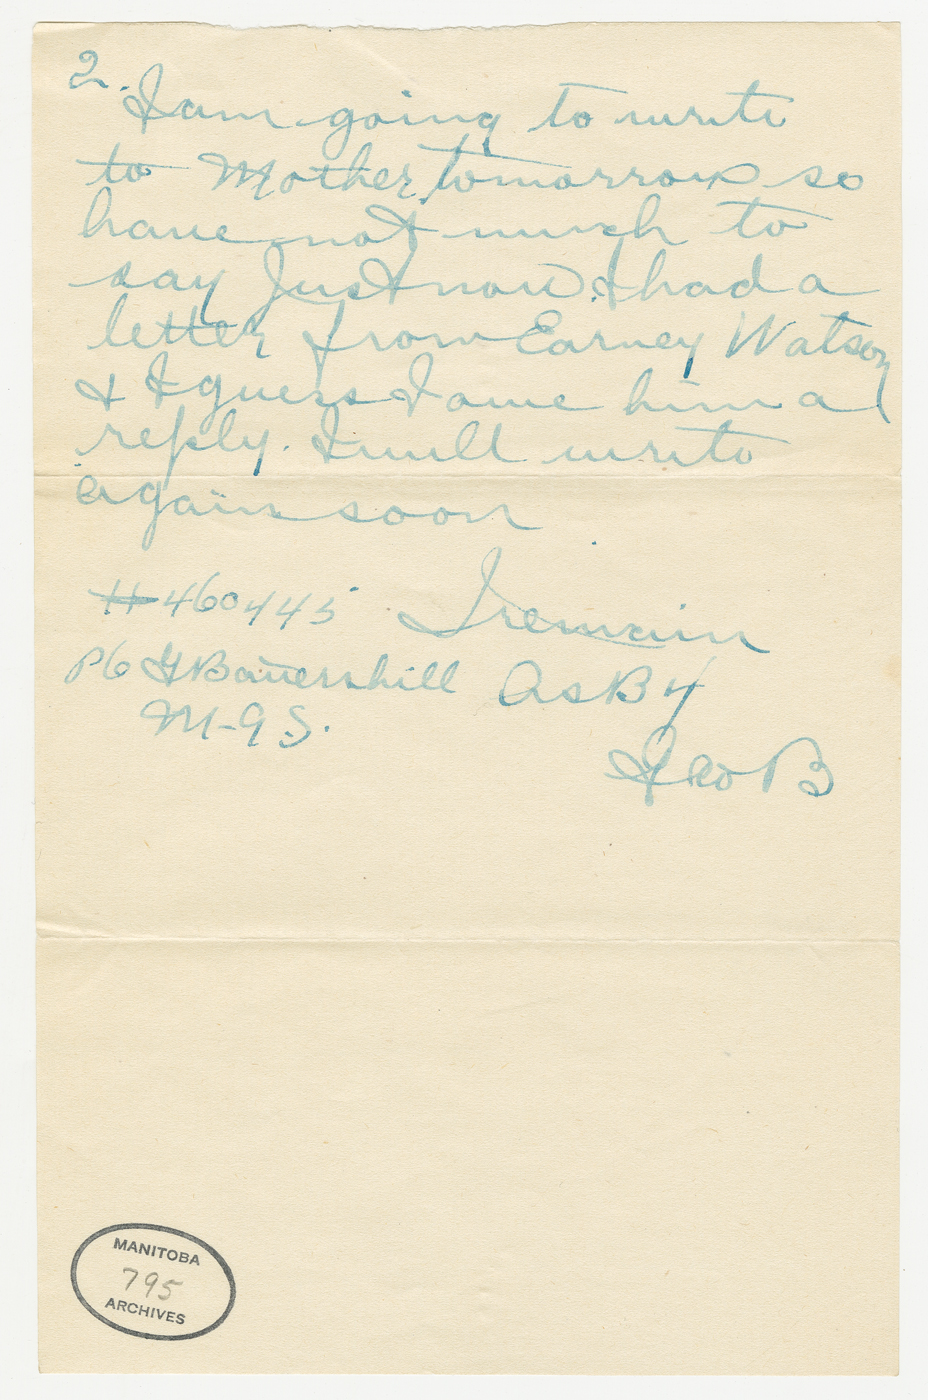 2.
I am going to write
to Mother tomorrow so
have not much to
say Just now. I had a
letter from Earney Watson
& I guess I owe him a
reply. I will write
again soon
I remain
# 460445
Pt G Battershill
As B 4
M-G S.
Geo B
MANITOBA
795
ARCHIVES